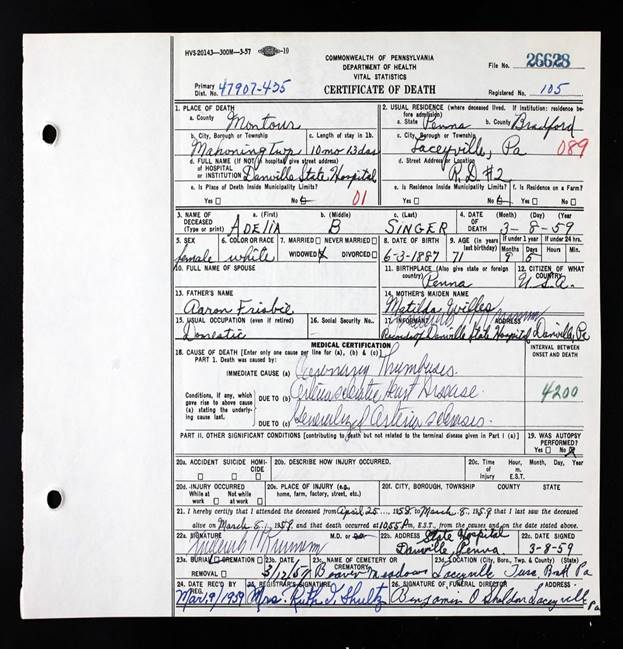 HVS-20143—300M—3-57 10
COMMONWEALTH OF PENNSYLVANIA
DEPARTMENT OF HEALTH
VITAL STATISTICS
CERTIFICATE OF DEATH
File No. 26628
Primary Dist. No. 47907-455
Registered No. 105
1. PLACE OF DEATH
a. County Montour
2. USUAL RESIDENCE (where deceased lived. If institution: residence before admission)
a. State Penna b. County Bradford
b. City, Borough or Township Mahoning Twp c. Length of stay in 1b. 10 mo 13 das
c. City, Borough or Township Laceyville, Pa 089
d. FULL NAME OF HOSPITAL OR INSTITUTION (If NOT in hospital give street address) Danville State Hospital
d. Street Address or Location R.D #2
e. Is Place of Death Inside Municipality Limits? Yes No 01
e. Is Residence Inside Municipal Limits? Yes No
f. Is Residence on a Farm? Yes No
3. NAME OF DECEASED (Type or print) a. (First) ADELIA b. (Middle) B c. (Last) SINGER
4. DATE OF DEATH (Month) (Day) (Year) 3-8-59
5. SEX female
6. COLOR OR RACE white
7. MARRIED NEVER MARRIED WIDOWED X DIVORCED
8. DATE OF BIRTH 6-3-1887
9. AGE (In years last birthday) 71 If under 1 year Mos. 9 Days 5 If under 24 hrs.
10. FULL NAME OF SPOUSE
11. BIRTHPLACE (Also give state or foreign country) Penna
12. CITIZEN OF WHAT COUNTRY U.S.A.
13. FATHER'S NAME Aaron Frisbie
14. MOTHER'S MAIDEN NAME Matilda
15. USUAL OCCUPATION (even if retired) Domestic
16. Social Security No.
17. INFORMANT ADDRESS Records of Danville State Hospital Danville, Pa
MEDICAL CERTIFICATION
INTERVAL BETWEEN ONSET AND DEATH
18. CAUSE OF DEATH [Enter only one cause per line for (a), (b) & (c)]
PART 1. Death was caused by:
IMMEDIATE CAUSE (a) Coronary Thrombosis
Conditions, if any, which gave rise to above cause (a) stating the underlying cause last.
DUE TO (b) Arteriosclerotic Heart Disease. 4200
DUE TO (c) Generalized Arteriosclerosis.
PART II. OTHER SIGNIFICANT CONDITIONS [contributing to death but not related to the terminal disease given in Part I (a)]
19. WAS AUTOPSY PERFORMED? Yes No
20a. ACCIDENT SUICIDE HOMICIDE
20b. DESCRIBE HOW INJURY OCCURRED.
20c. TIME OF INJURY Hour, Month, Day, Year
20d. INJURY OCCURRED While at work Not while at work
20e. PLACE OF INJURY (e.g., home, farm, factory, street, etc.)
20f. CITY, BOROUGH, TOWNSHIP COUNTY STATE
21. I hereby certify that I attended the deceased from April 25 1958 to March 8, 1959 that I last saw the deceased
alive on March 8, 1959 and that death occurred at 10:55 P m, E.S.T., from the causes and on the date stated above.
22a. SIGNATURE M.D. or
22b. ADDRESS State Hospital Danville, Penna
22c. DATE SIGNED 3-8-59
23a. BURIAL CREMATION REMOVAL
23b. DATE 3/12/59
23c. NAME OF CEMETERY OR CREMATORY Beaver Meadows
23d. LOCATION (City, Boro, Twp. & County) (State) Laceyville Pa
24. DATE REC'D BY REG. Mar. 9/1959
25. REGISTRAR'S SIGNATURE Mrs. Ruth I. Shultz
26. SIGNATURE OF FUNERAL DIRECTOR ADDRESS Benjamin O Sheldon Laceyville Pa